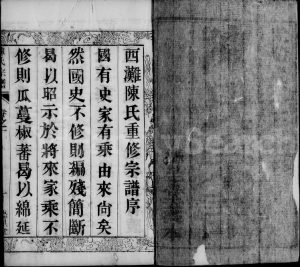 西灘陳氏重修宗譜序
國有史家有乘由來尚矣
然國史不修則編殘簡斷
曷以昭示於將來家乘不
修則瓜蔓椒蕃曷以綿延
MySearch